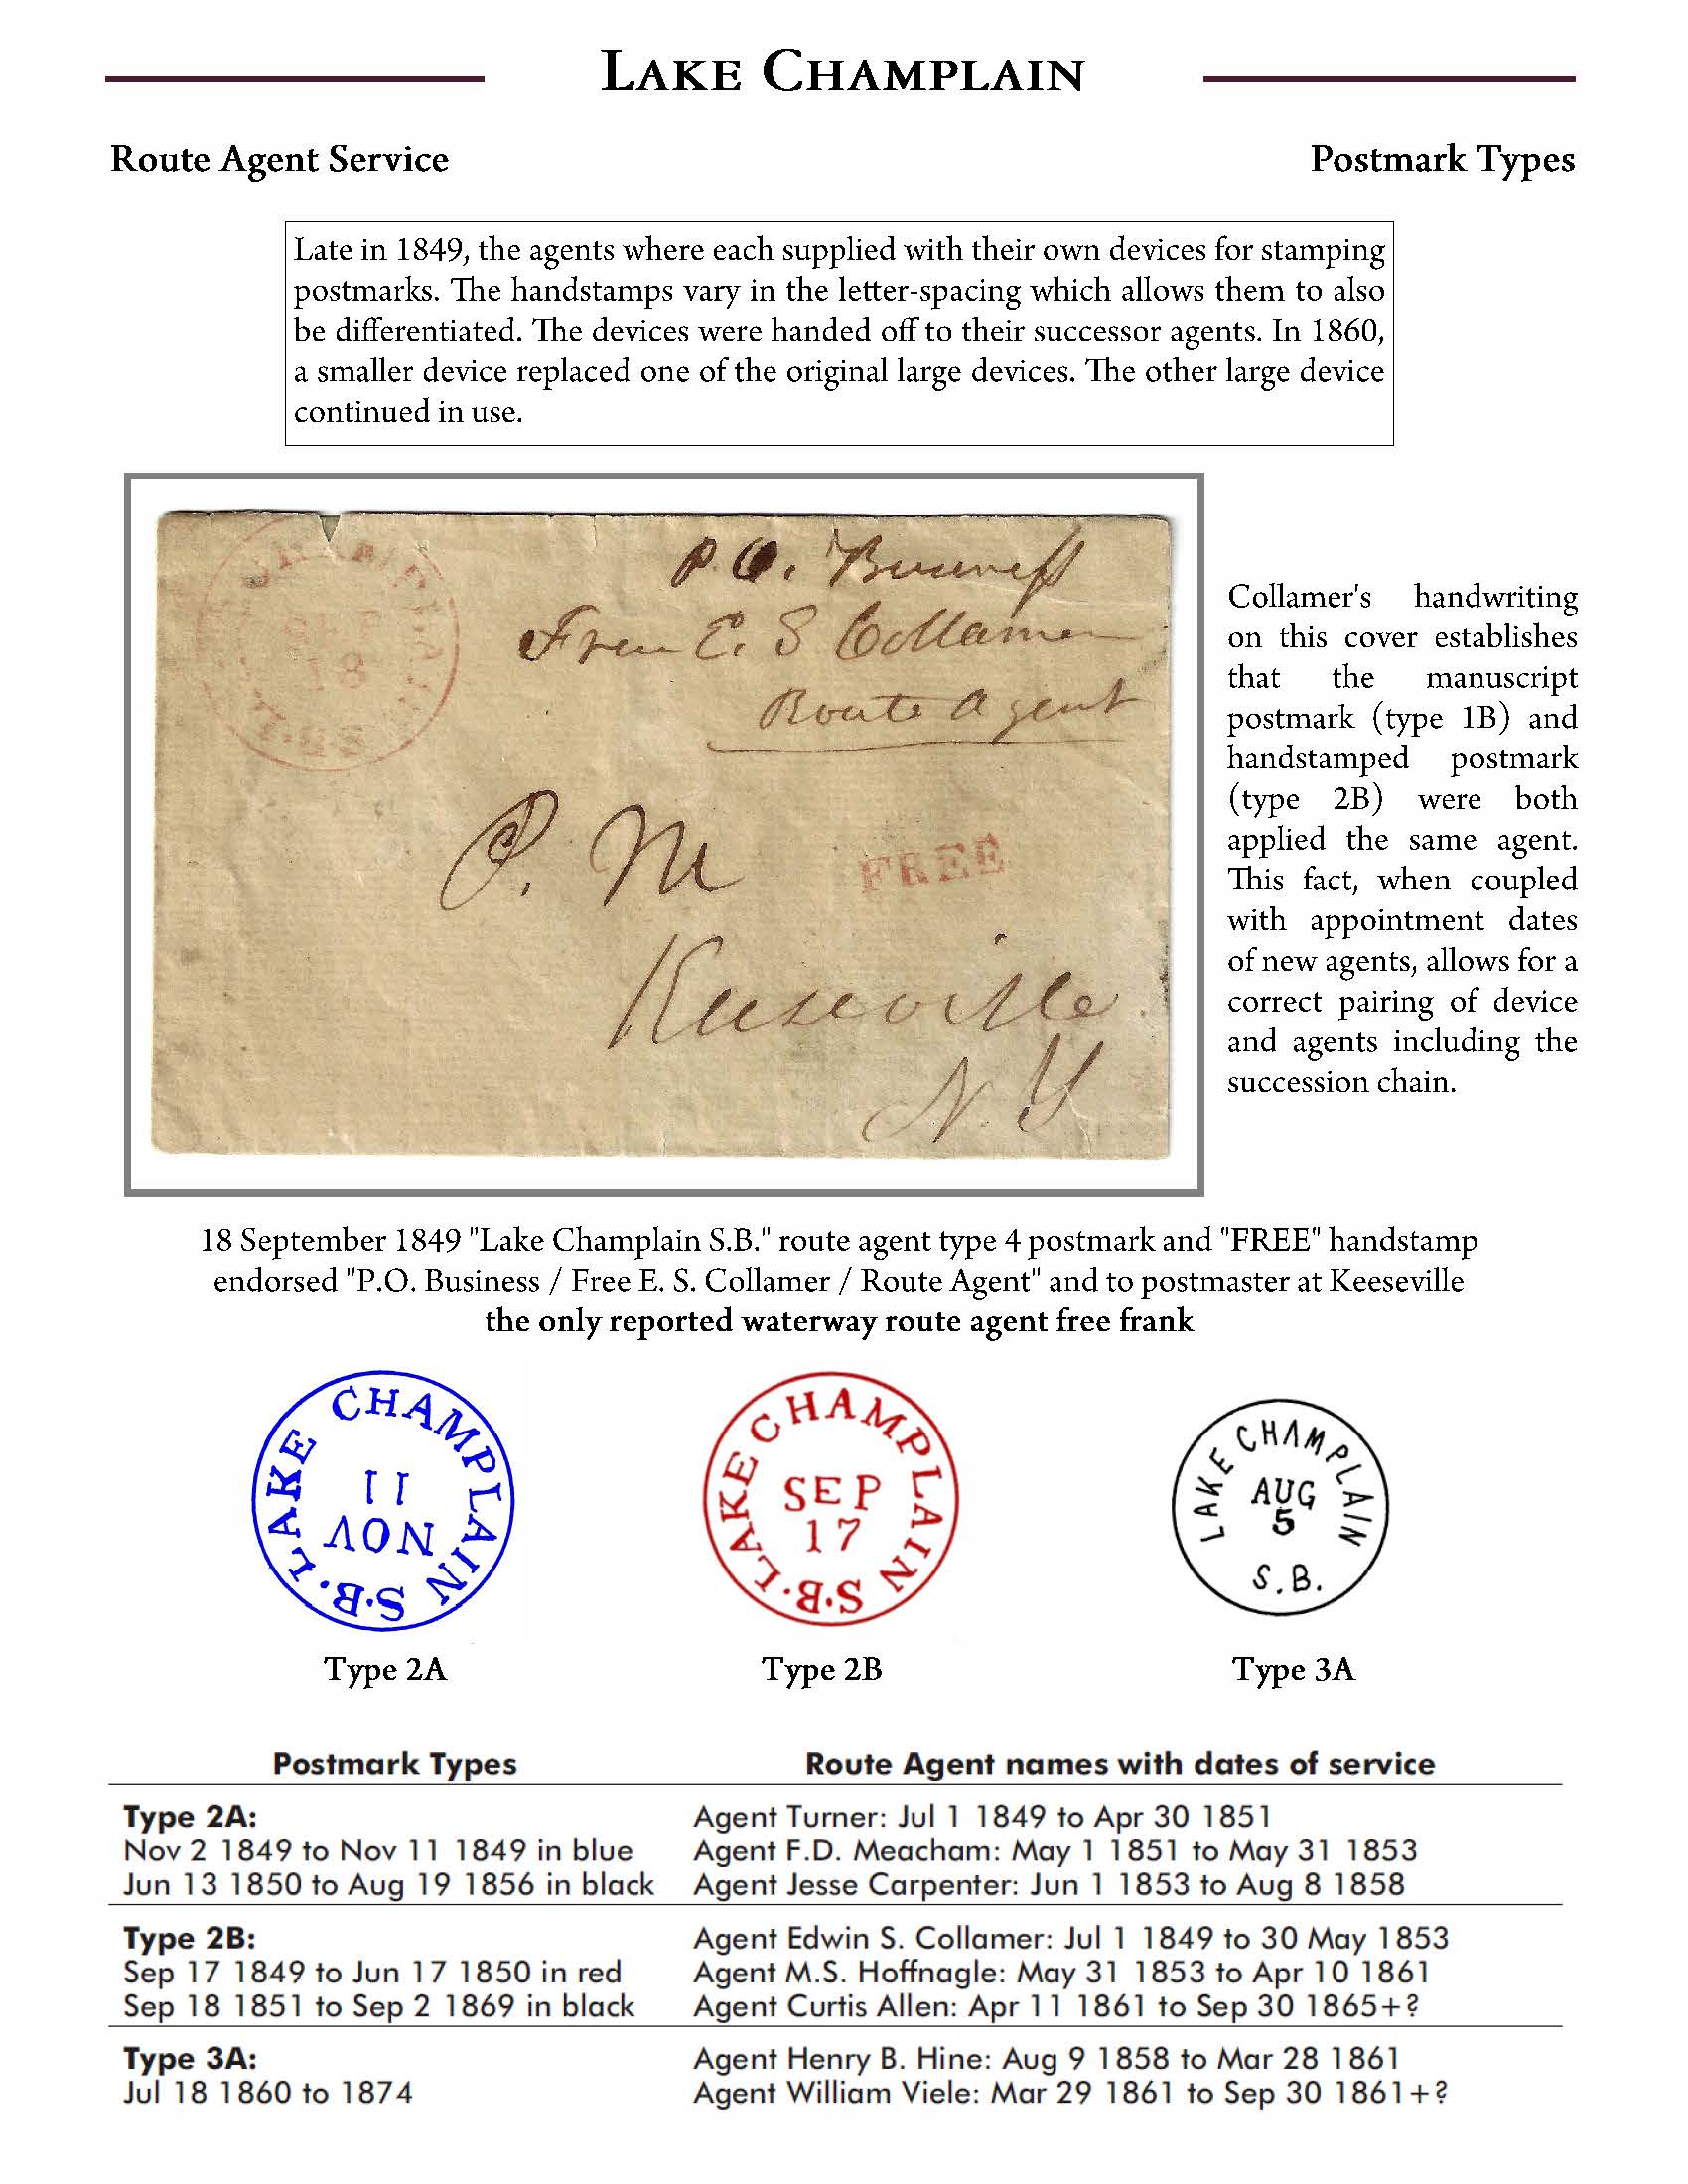 LAKE CHAMPLAIN
Route Agent Service
Postmark Types
Late in 1849, the agents where each supplied with their own devices for stamping
postmarks. The handstamps vary in the letter-spacing which allows them to also
be differentiated. The devices were handed off to their successor agents. In 1860,
a smaller device replaced one of the original large devices. The other large device
continued in use.
SEP
18
S.B.
P.O. Business
Free E. S Collamer
Route Agent
P. M
FREE
Keeseville
N. Y
Collamer's handwriting
on this cover establishes
that the manuscript
postmark (type 1B) and
handstamped postmark
(type 2B) were both
applied the same agent.
This fact, when coupled
with appointment dates
of new agents, allows for a
correct pairing of device
and agents including the
succession chain.
18 September 1849 "Lake Champlain S.B." route agent type 4 postmark and "FREE" handstamp
endorsed "P.O. Business / Free E. S. Collamer / Route Agent" and to postmaster at Keeseville
the only reported waterway route agent free frank
LAKE CHAMPLAIN S.B.L.
11
NOV
LAKE CHAMPLAIN S.B.L.
SEP
17
LAKE CHAMPLAIN
AUG
5
S.B.
Type 2A
Type 2B
Type 3A
Postmark Types
Route Agent names with dates of service
Type 2A:
Agent Turner: Jul 1 1849 to Apr 30 1851
Nov 2 1849 to Nov 11 1849 in blue
Agent F.D. Meacham: May 1 1851 to May 31 1853
Jun 13 1850 to Aug 19 1856 in black
Agent Jesse Carpenter: Jun 1 1853 to Aug 8 1858
Type 2B:
Agent Edwin S. Collamer: Jul 1 1849 to 30 May 1853
Sep 17 1849 to Jun 17 1850 in red
Agent M.S. Hoffnagle: May 31 1853 to Apr 10 1861
Sep 18 1851 to Sep 2 1869 in black
Agent Curtis Allen: Apr 11 1861 to Sep 30 1865+?
Type 3A:
Agent Henry B. Hine: Aug 9 1858 to Mar 28 1861
Jul 18 1860 to 1874
Agent William Viele: Mar 29 1861 to Sep 30 1861+?